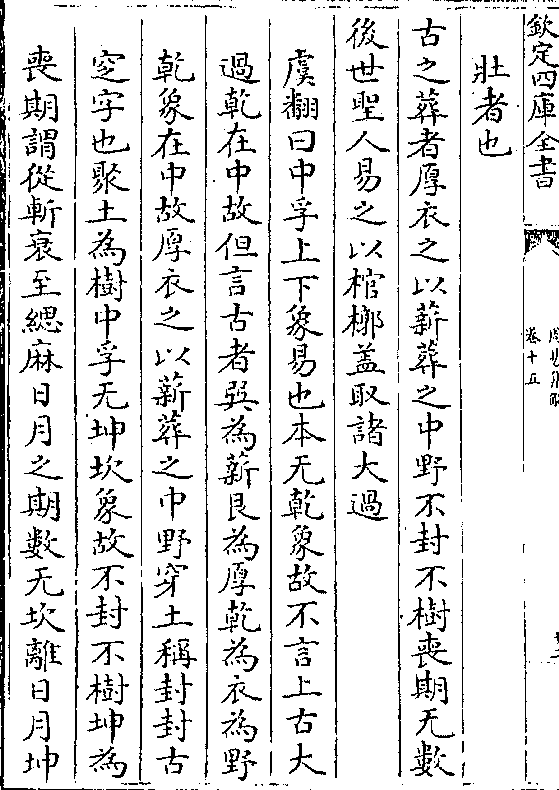 欽定四庫全書
卷十五
壯者也
古之葬者厚衣之以薪葬之中野不封不樹喪期无數
後世聖人易之以棺槨盖取諸大過
虞翻曰中孚上下象易也本无乾象故不言上古大
過乾在中故但言古者巽為薪艮為厚乾為衣為野
乾象在中故厚衣之以薪葬之中野穿土稱封封古
窆字也聚土為樹中孚无坤坎象故不封不樹坤為
喪期謂從斬衰至緦麻日月之期數无坎離日月坤